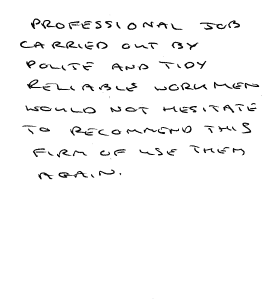 PROFESSIONAL JOB
CARRIED OUT BY
POLITE AND TIDY
RELIABLE WORKMEN
WOULD NOT HESITATE
TO RECOMMEND THIS
FIRM OF USE THEM
AGAIN.